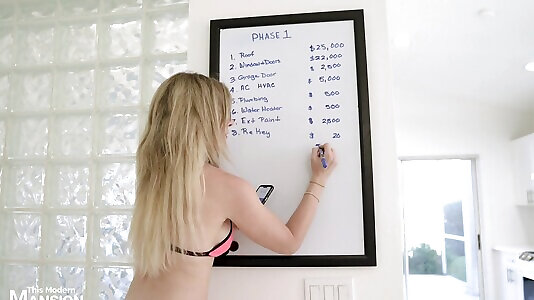 PHASE 1
1. Roof $25,000
2. Window+Doors $22,000
3 Garage Door $2,500
4. AC HVAC $5,000
5. Plumbing $500
6. Water Heater $500
7. Ext Paint $2800
8. Re Key $20
This Modern
MANSION